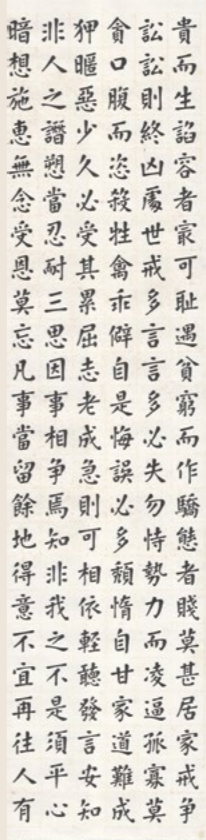 貴而生諂容者㝡可耻遇貧窮而作驕態者賤莫甚居家戒争
訟訟則終凶處世戒多言言多必失勿恃勢力而凌逼孤寡莫
貪口腹而恣殺牲禽乖僻自是悔誤必多頹惰自甘家道難成
狎暱惡少久必受其累屈志老成急則可相依輕聽發言安知
非人之譖愬當忍耐三思因事相争焉知非我之不是須平心
暗想施惠無念受恩莫忘凡事當留餘地得意不宜再往人有